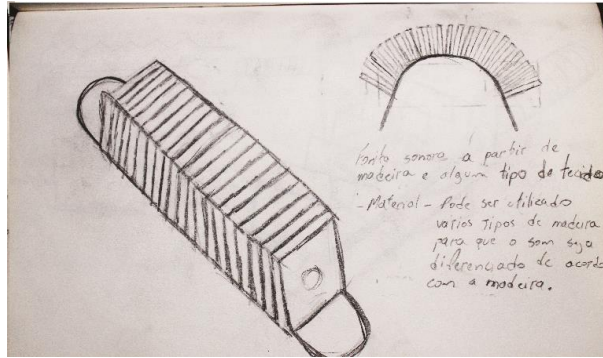 fonte sonora a partir de
madeira e algum tipo de tecido
- Material - Pode ser utilizado
varios tipos de madeira
para que o som seja
diferenciado de acordo
com a madeira.